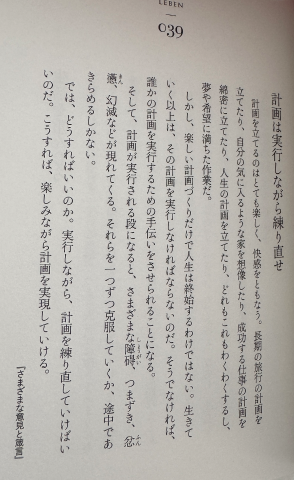 LEBEN
039
計画は実行しながら練り直せ
計画を立てるのはとても楽しく、快感をともなう。長期の旅行の計画を
立てたり、自分の気に入るような家を想像したり、成功する仕事の計画を
綿密に立てたり、人生の計画を立てたり、どれもこれもわくわくするし、
夢や希望に満ちた作業だ。
しかし、楽しい計画づくりだけで人生は終始するわけではない。生きて
いく以上は、その計画を実行しなければならないのだ。そうでなければ、
誰かの計画を実行するための手伝いをさせられることになる。
そして、計画が実行される段になると、さまざまな障碍、つまずき、忿
懣、幻滅などが現れてくる。それらを一つずつ克服していくか、途中であ
きらめるしかない。
では、どうすればいいのか。実行しながら、計画を練り直していけばい
いのだ。こうすれば、楽しみながら計画を実現していける。
『さまざまな意見と箴言』